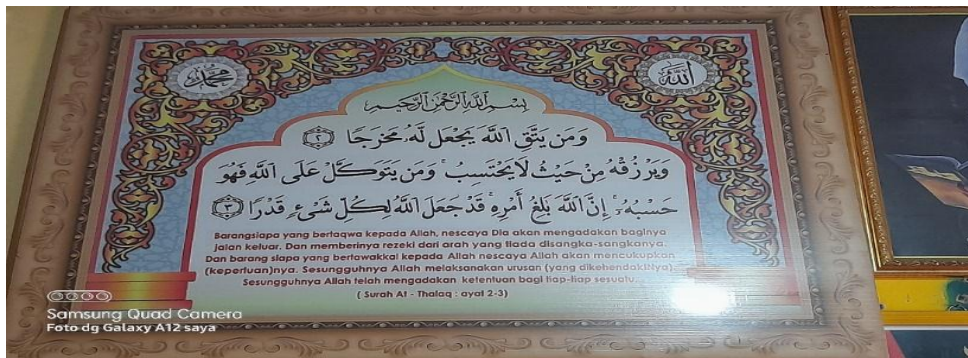 محمد
الله
بسم الله الرحمن الرحيم
ومن يتق الله يجعل له مخرجا ٢
ويرزقه من حيث لا يحتسب ومن يتوكل على الله فهو
حسبه إن الله بلغ أمره قد جعل الله لكل شيء قدرا ٣
Barangsiapa yang bertaqwa kepada Allah, nescaya Dia akan mengadakan baginya
jalan keluar. Dan memberinya rezeki dari arah yang tiada disangka-sangkanya.
Dan barang siapa yang bertawakkal kepada Allah nescaya Allah akan mencukupkan
(keperluan)nya. Sesungguhnya Allah melaksanakan urusan (yang dikehendakiNya).
Sesungguhnya Allah telah mengadakan ketentuan bagi tiap-tiap sesuatu
( Surah At - Thalaq : ayat 2-3)
Samsung Quad Camera
Foto dg Galaxy A12 saya